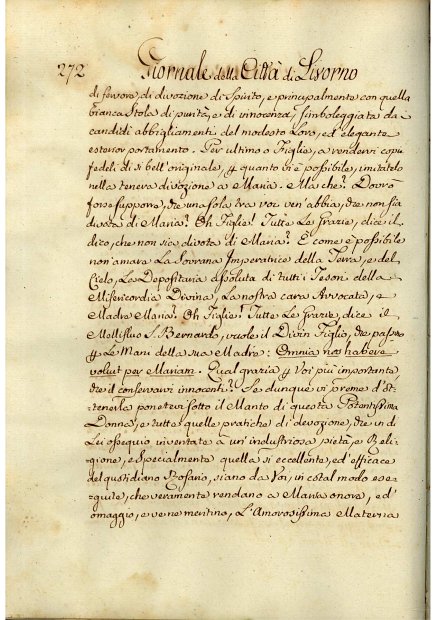 272 Giornale della Città di Livorno
di fervore, di divozione di Spirito, e principalmente con quella
bianca Stola di purità, e di innocenza, simboleggiata da
candidi abbigliamenti del modesto Loro, ed elegante
esterior portamento. Per ultimo o Figlie, a rendervi copie
fedeli di sì bell'originale, p quanto vi è possibile, imitatelo
nella tenera divozione a Maria. Ma che? Dovrò
forse supporre, che una sola tra voi ven'abbia, che non sia
divota di Maria? Oh Figlie! Tutte Le Grazie, dice il
dico, che non sia divota di Maria? E come è possibile
non amare La Sovrana Imperatrice della Terra, e del
Cielo, La Depositaria assoluta di tutti i Tesori della
Misericordia Divina, La nostra cara Avvocata, e
Madre Maria? Oh Figlie! Tutte Le Grazie, dice il
Mellifluo S. Bernardo, vuole il Divin Figlio, che passino
p Le Mani della sua Madre: Omnia nos habere
voluit per Mariam. Qual grazia p Voi più importante
che il conservarvi innocenti? Se dunque vi preme d'ot-
tenerla ponetevi sotto il Manto di questa Potentissima
Donna, e tutte quelle pratiche di devozione, che in di
Lei ossequio inventate a un'industriosa pietà, e Reli-
gione, e specialmente quella sì eccellente, ed'efficace
del quotidiano Rosario, siano da Voi, in cotal modo ese-
guite, che veramente rendano a Maria onore, ed'
omaggio, e vene meritino, L'Amorosissima Materna